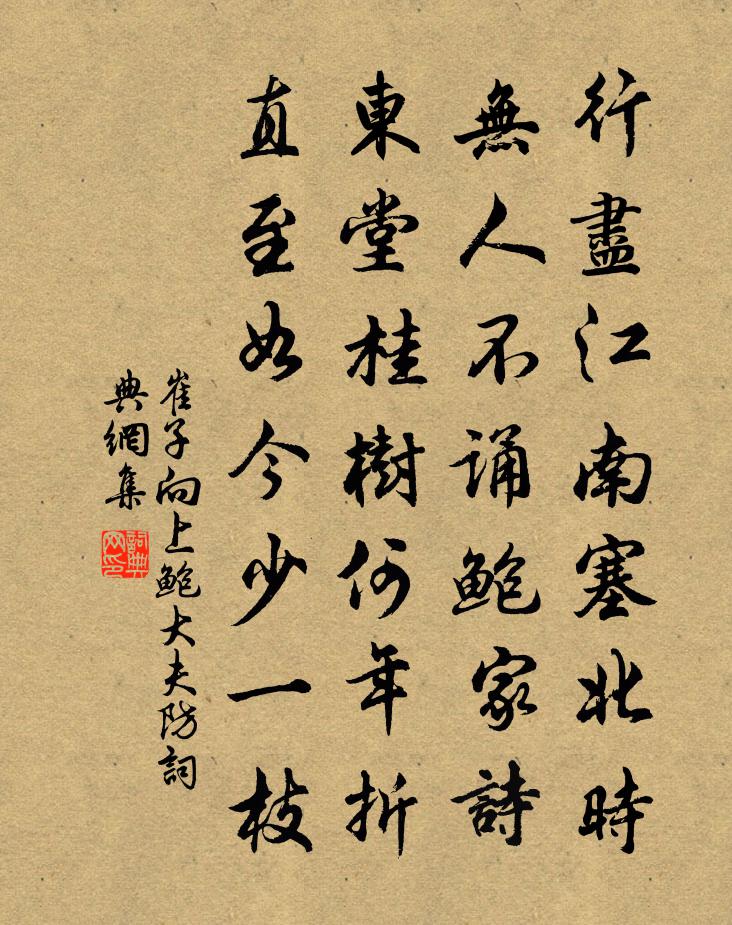 行盡江南塞北時
無人不誦鮑家詩
東堂桂樹何年折
直至如今少一枝
崔子向上鮑大夫防詞
典網集
詞典
网印